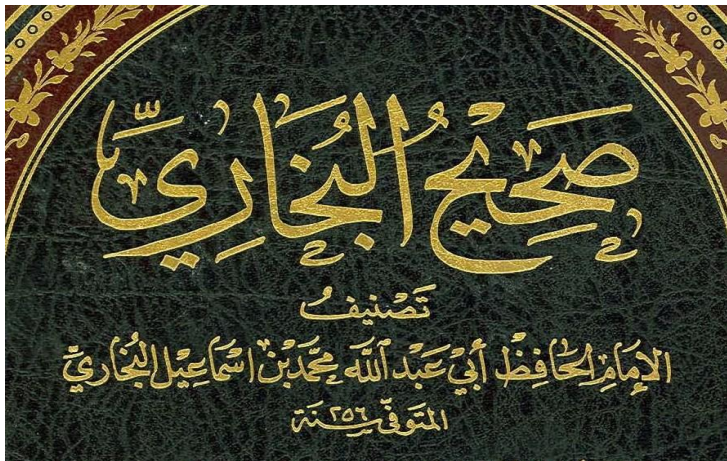 صَحِيحُ البُخَارِيِّ
تَصْنِيفُ
الإِمَامِ الحَافِظِ أَبِي عَبْدِ اللَّهِ مُحَمَّدِ بْنِ اسْمَاعِيلَ البُخَارِيِّ
المتَوفَّىٰ سَنَة ٢٥٦